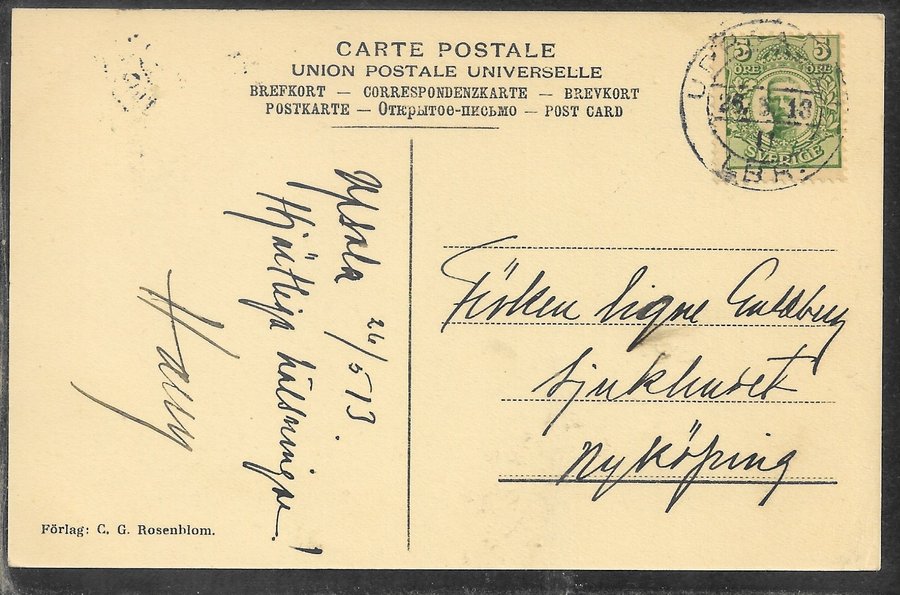 CARTE POSTALE
UNION POSTALE UNIVERSELLE
BREFKORT — CORRESPONDENZKARTE — BREVKORT
POSTKARTE — Открытое-письмо — POST CARD
5 5
ÖRE ÖRE
SVERIGE
26. 5. 13
LBR.
Upsala 26/5 13.
Hjärtliga hälsningar!
Harry
Fröken Signe
Sjukhuset
Nyköping
Förlag: C. G. Rosenblom.